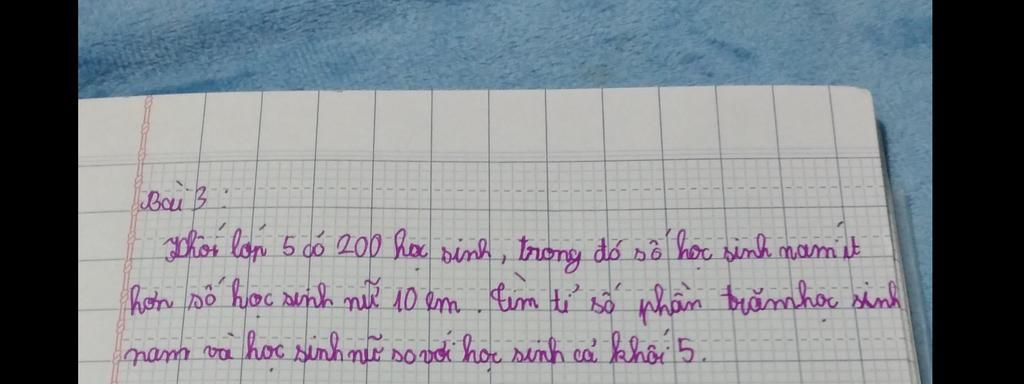 Bài 3 :
Khối lớp 5 có 200 học sinh, trong đó số học sinh nam ít
hơn số học sinh nữ 10 em. Tìm tỉ số phần trăm học sinh
nam và học sinh nữ so với học sinh cả khối 5.